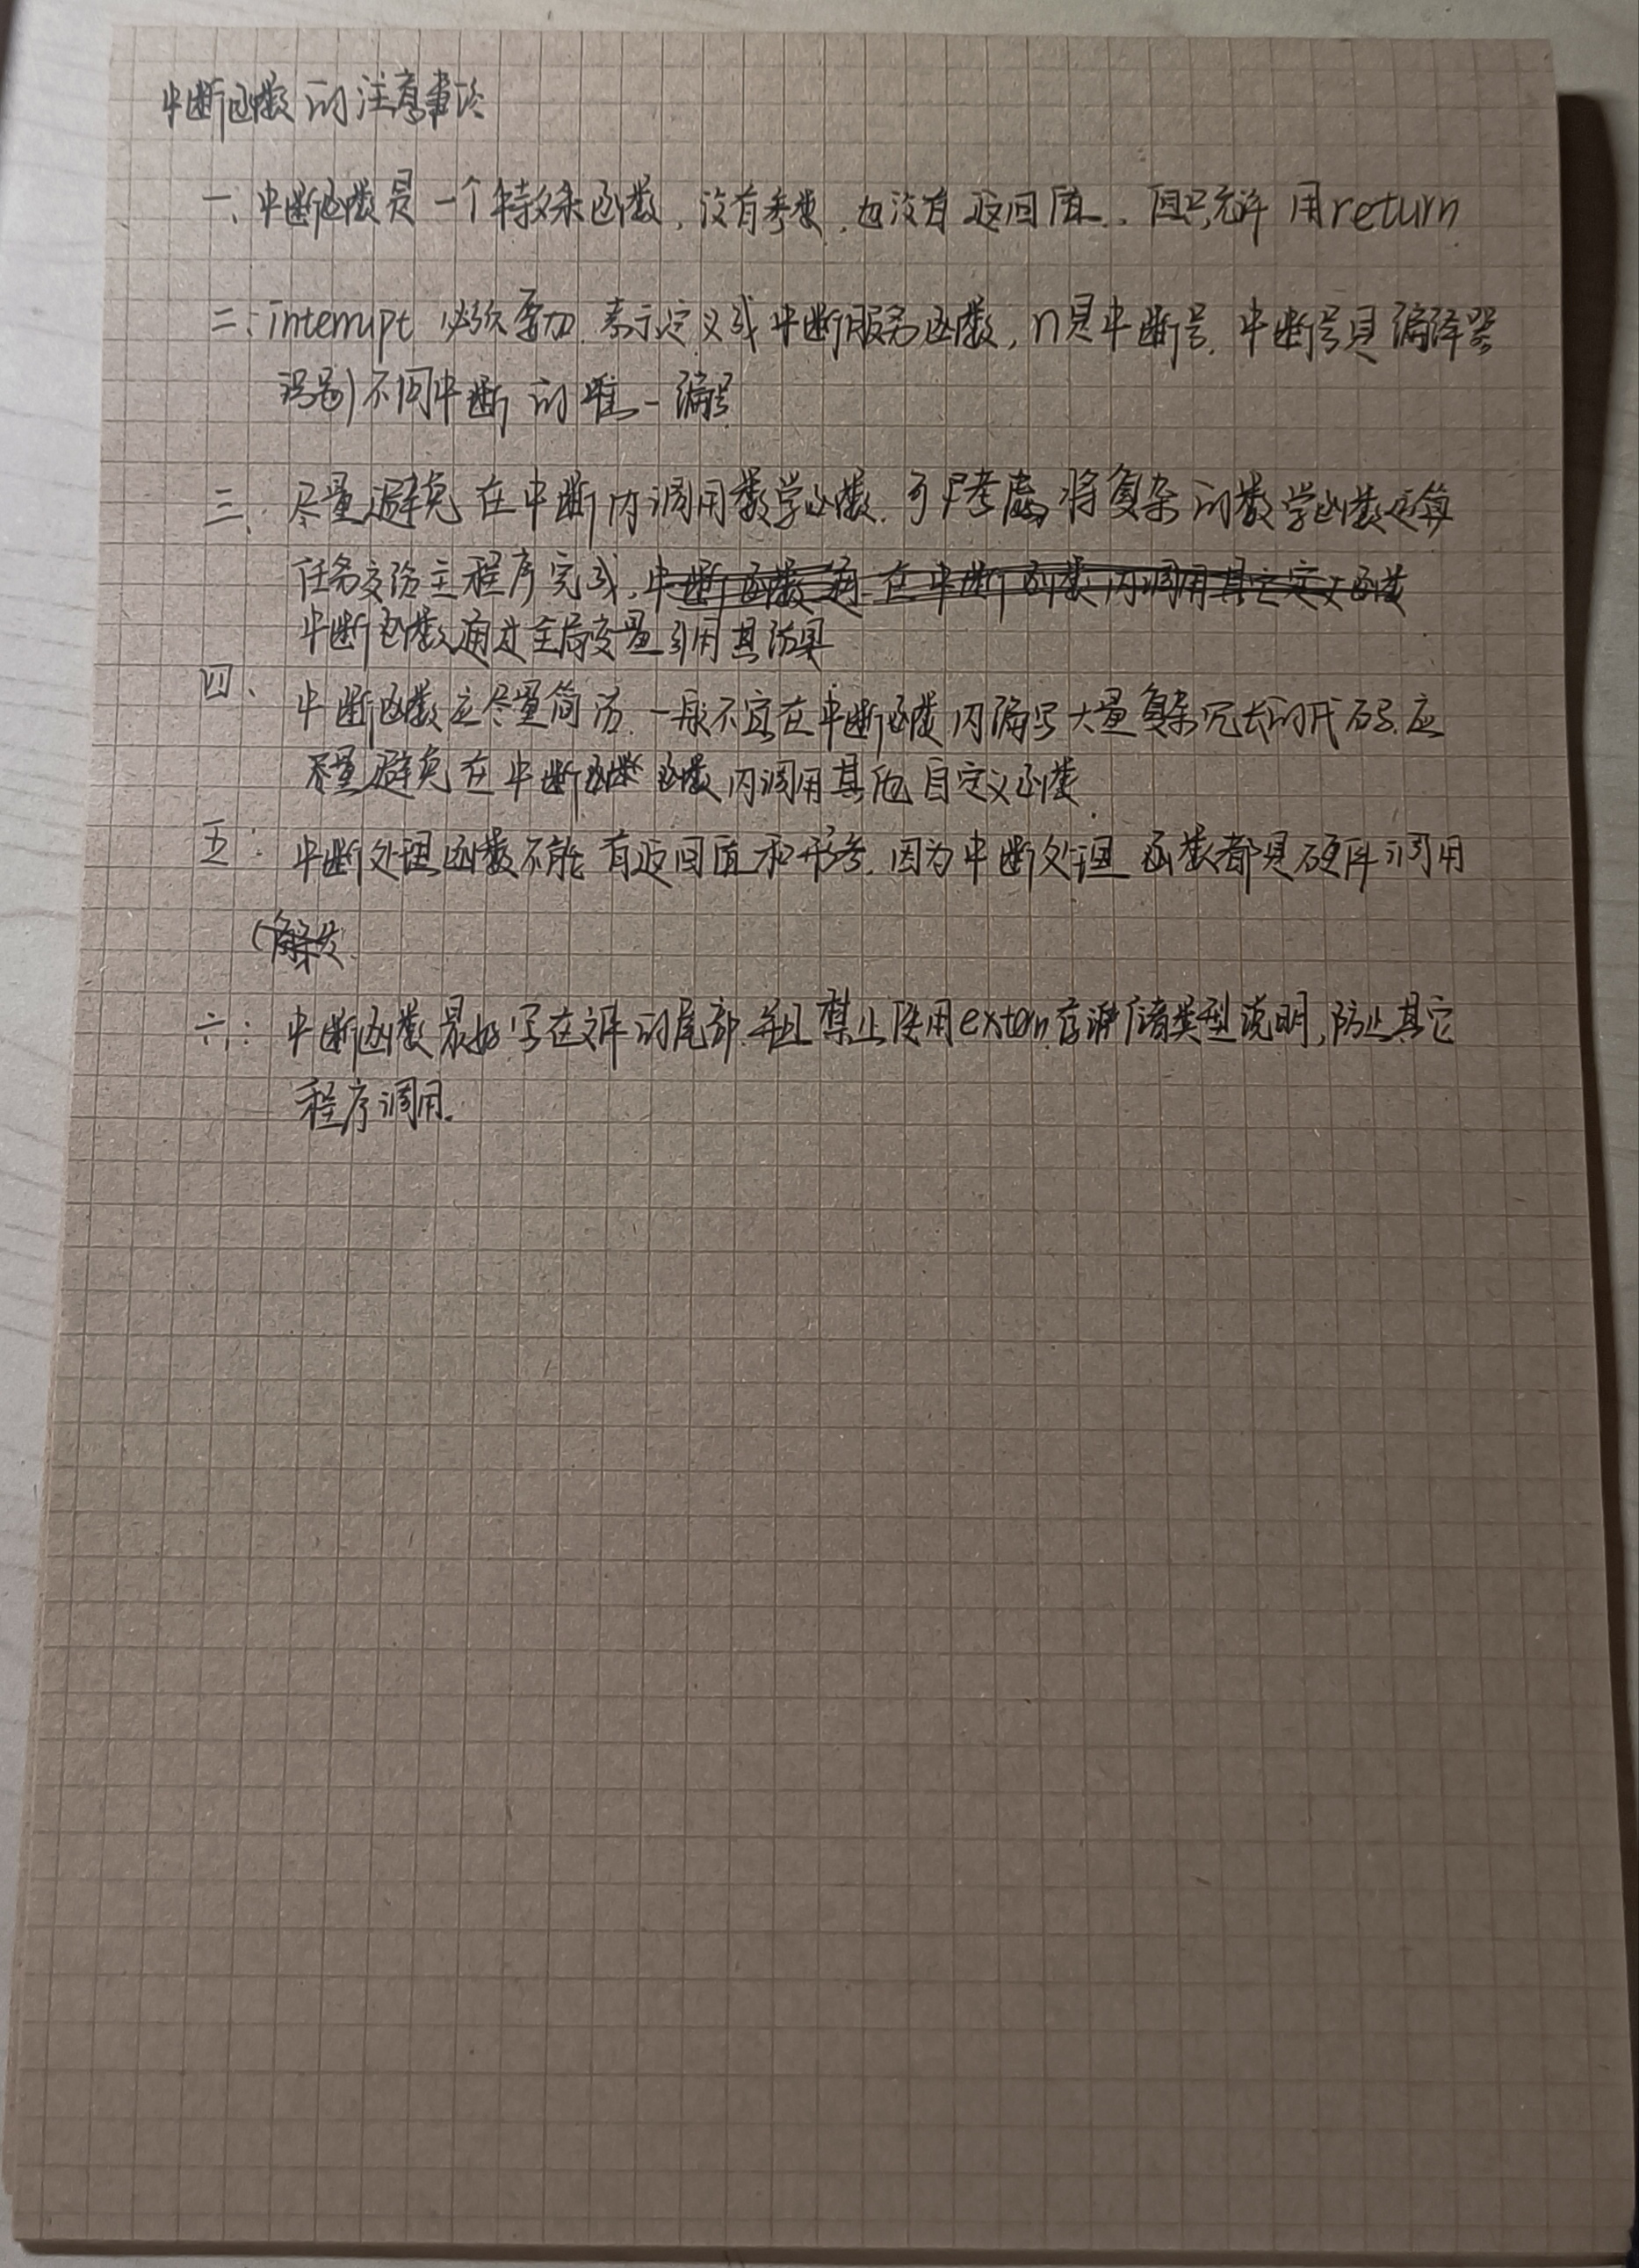 中断函数的注意事项
一、中断函数是一个特殊函数,没有参数,也没有返回值.. 但是允许用return
二、interrupt 必须要加.表示定义成中断服务函数,n是中断号.中断号是编译器
识别不同中断的唯一编号
三、尽量避免在中断内调用数学函数.可以考虑将复杂的数学函数运算
任务交给主程序完成.中断函数通 在中断函数内调用其它定义函数
中断函数通过全局变量引用其结果
四、中断函数应尽量简洁.一般不宜在中断函数内编写大量复杂冗长的代码.应
尽量避免在中断函数函数内调用其他自定义函数
五:中断处理函数不能有返回值和形参.因为中断处理函数都是硬件调用
(触发.
六:中断函数最好写在文件的尾部.并且禁止使用extern存储类型说明,防止其它
程序调用.